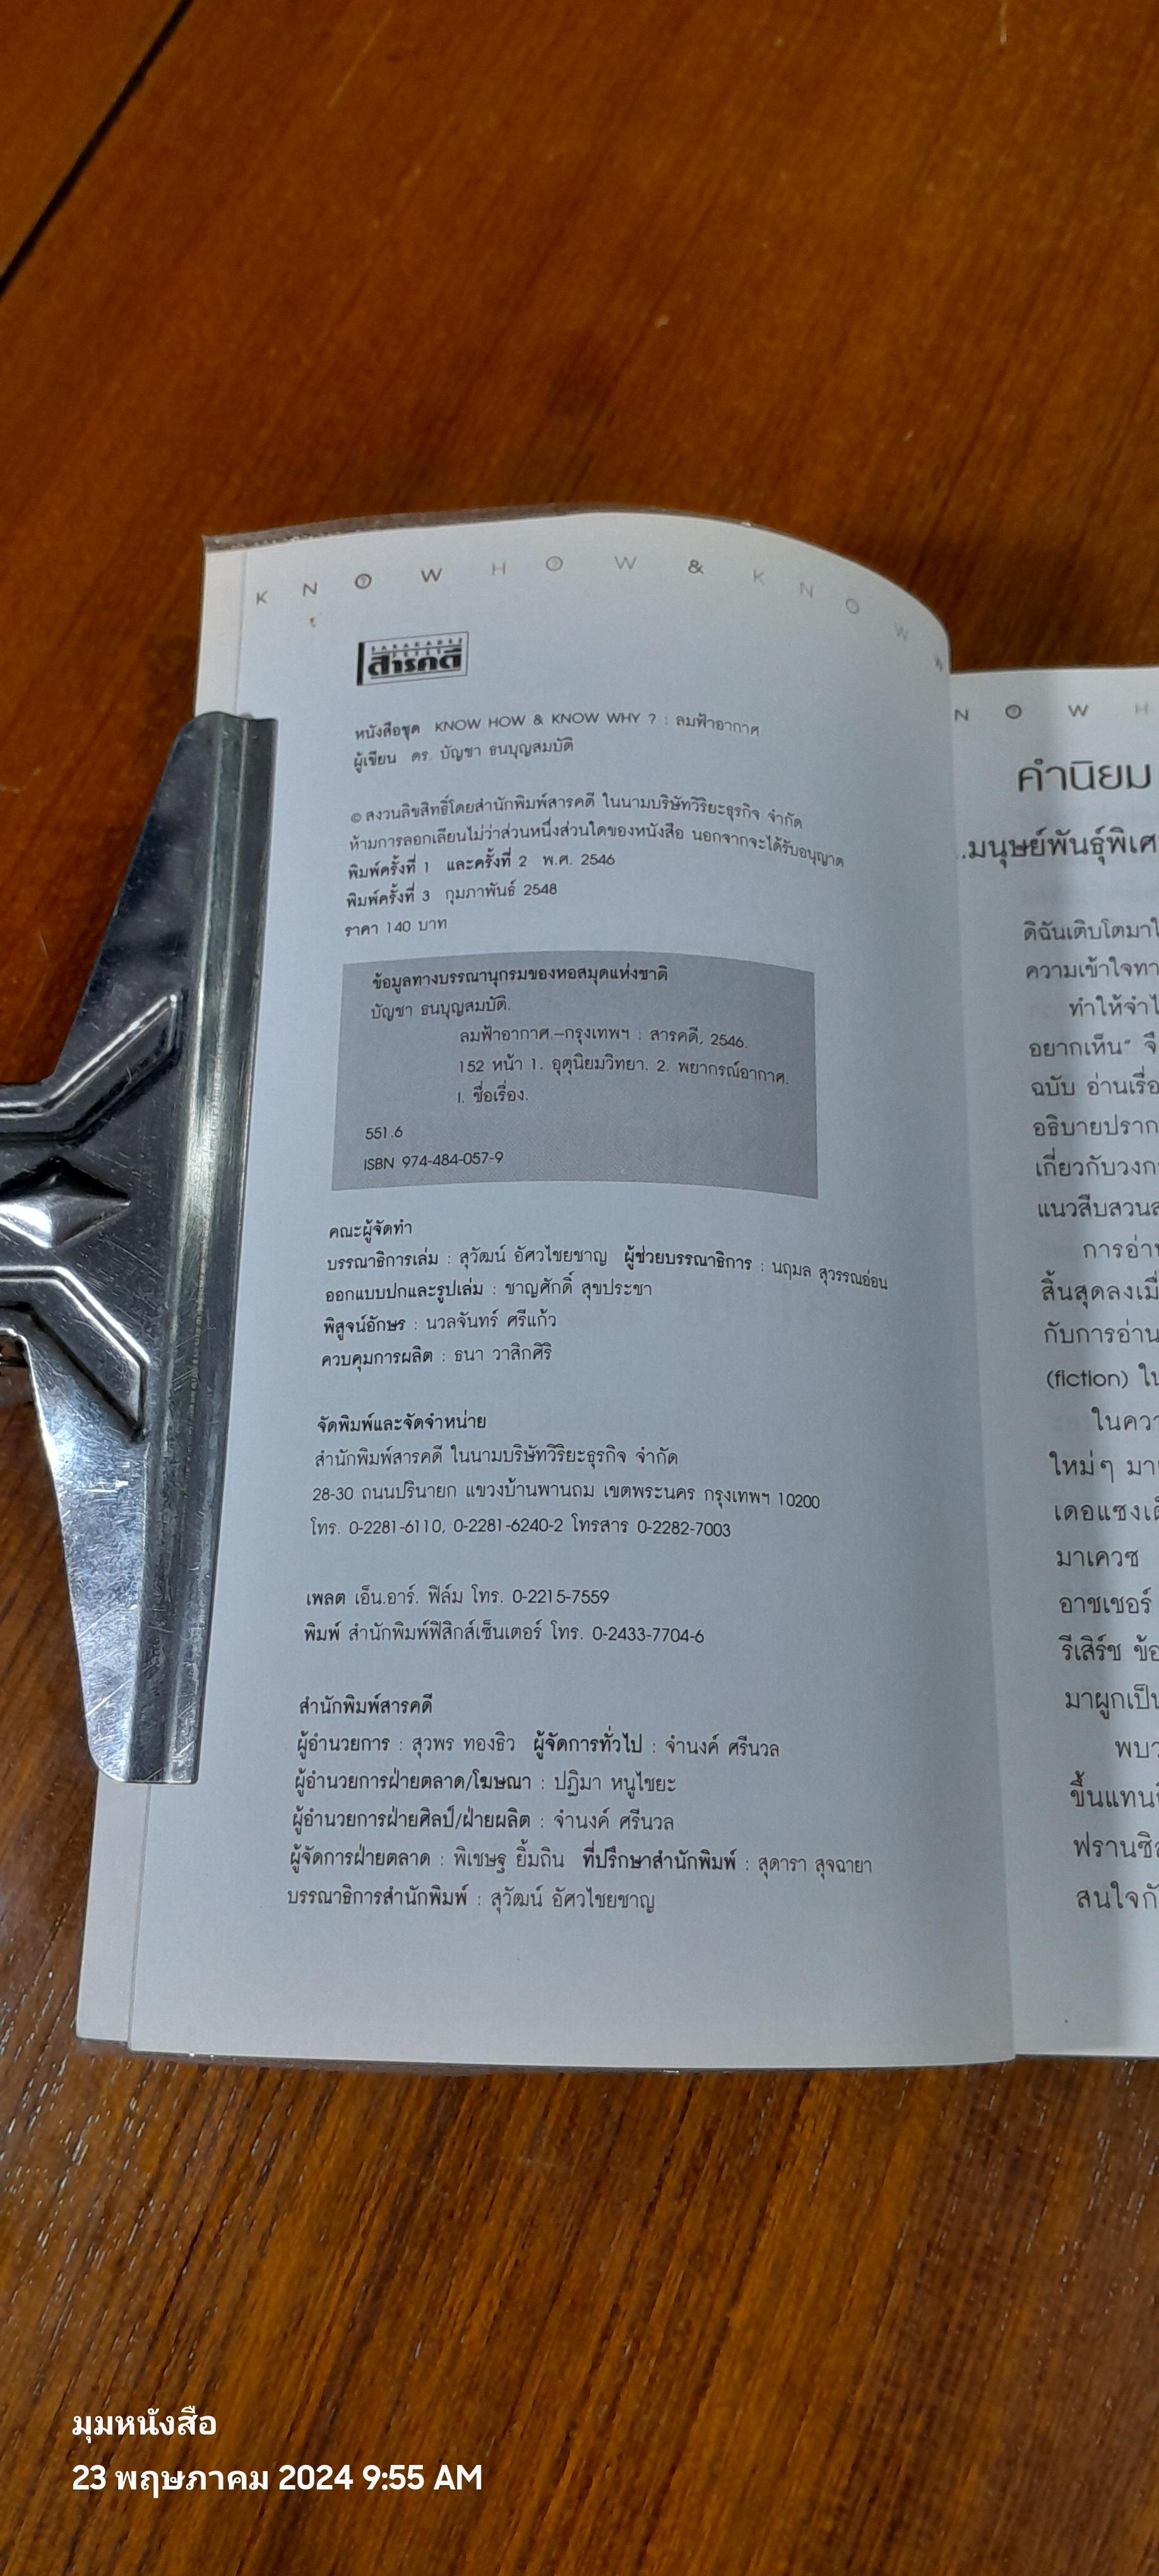 KNOW HOW & KNOW W
SARAKADEE PRESS
สารคดี
หนังสือชุด KNOW HOW & KNOW WHY ? : ลมฟ้าอากาศ
ผู้เขียน ดร. บัญชา ธนบุญสมบัติ
© สงวนลิขสิทธิ์โดยสำนักพิมพ์สารคดี ในนามบริษัทวิริยะธุรกิจ จำกัด
ห้ามการลอกเลียนไม่ว่าส่วนหนึ่งส่วนใดของหนังสือ นอกจากจะได้รับอนุญาต
พิมพ์ครั้งที่ 1 และครั้งที่ 2 พ.ศ. 2546
พิมพ์ครั้งที่ 3 กุมภาพันธ์ 2548
ราคา 140 บาท
ข้อมูลทางบรรณานุกรมของหอสมุดแห่งชาติ
บัญชา ธนบุญสมบัติ.
ลมฟ้าอากาศ.--กรุงเทพฯ : สารคดี, 2546.
152 หน้า 1. อุตุนิยมวิทยา. 2. พยากรณ์อากาศ.
I. ชื่อเรื่อง.
551.6
ISBN 974-484-057-9
คณะผู้จัดทำ
บรรณาธิการเล่ม : สุวัฒน์ อัศวไชยชาญ ผู้ช่วยบรรณาธิการ : นฤมล สุวรรณอ่อน
ออกแบบปกและรูปเล่ม : ชาญศักดิ์ สุขประชา
พิสูจน์อักษร : นวลจันทร์ ศรีแก้ว
ควบคุมการผลิต : ธนา วาสิกศิริ
จัดพิมพ์และจัดจำหน่าย
สำนักพิมพ์สารคดี ในนามบริษัทวิริยะธุรกิจ จำกัด
28-30 ถนนปรินายก แขวงบ้านพานถม เขตพระนคร กรุงเทพฯ 10200
โทร. 0-2281-6110, 0-2281-6240-2 โทรสาร 0-2282-7003
เพลต เอ็น.อาร์. ฟิล์ม โทร. 0-2215-7559
พิมพ์ สำนักพิมพ์ฟิสิกส์เซ็นเตอร์ โทร. 0-2433-7704-6
สำนักพิมพ์สารคดี
ผู้อำนวยการ : สุวพร ทองธิว ผู้จัดการทั่วไป : จำนงค์ ศรีนวล
ผู้อำนวยการฝ่ายตลาด/โฆษณา : ปฏิมา หนูไชยะ
ผู้อำนวยการฝ่ายศิลป์/ฝ่ายผลิต : จำนงค์ ศรีนวล
ผู้จัดการฝ่ายตลาด : พิเชษฐ ยิ้มถิน ที่ปรึกษาสำนักพิมพ์ : สุดารา สุจฉายา
บรรณาธิการสำนักพิมพ์ : สุวัฒน์ อัศวไชยชาญ
NOW H
คำนิยม
..มนุษย์พันธุ์พิเศ
ดิฉันเติบโตมาใ
ความเข้าใจทา
ทำให้จำไ
อยากเห็น" จึ
ฉบับ อ่านเรื่อ
อธิบายปราก
เกี่ยวกับวงก
แนวสืบสวนส
การอ่า
สิ้นสุดลงเมื่
กับการอ่าน
(fiction) ใ
ในควา
ใหม่ๆ มา
เดอแซงเต็
มาเควซ
อาชเชอร์
รีเสิร์ช ข้อ
มาผูกเป็น
พบว
ขึ้นแทนที
ฟรานซิส
สนใจกั
มุมหนังสือ
23 พฤษภาคม 2024 9:55 AM